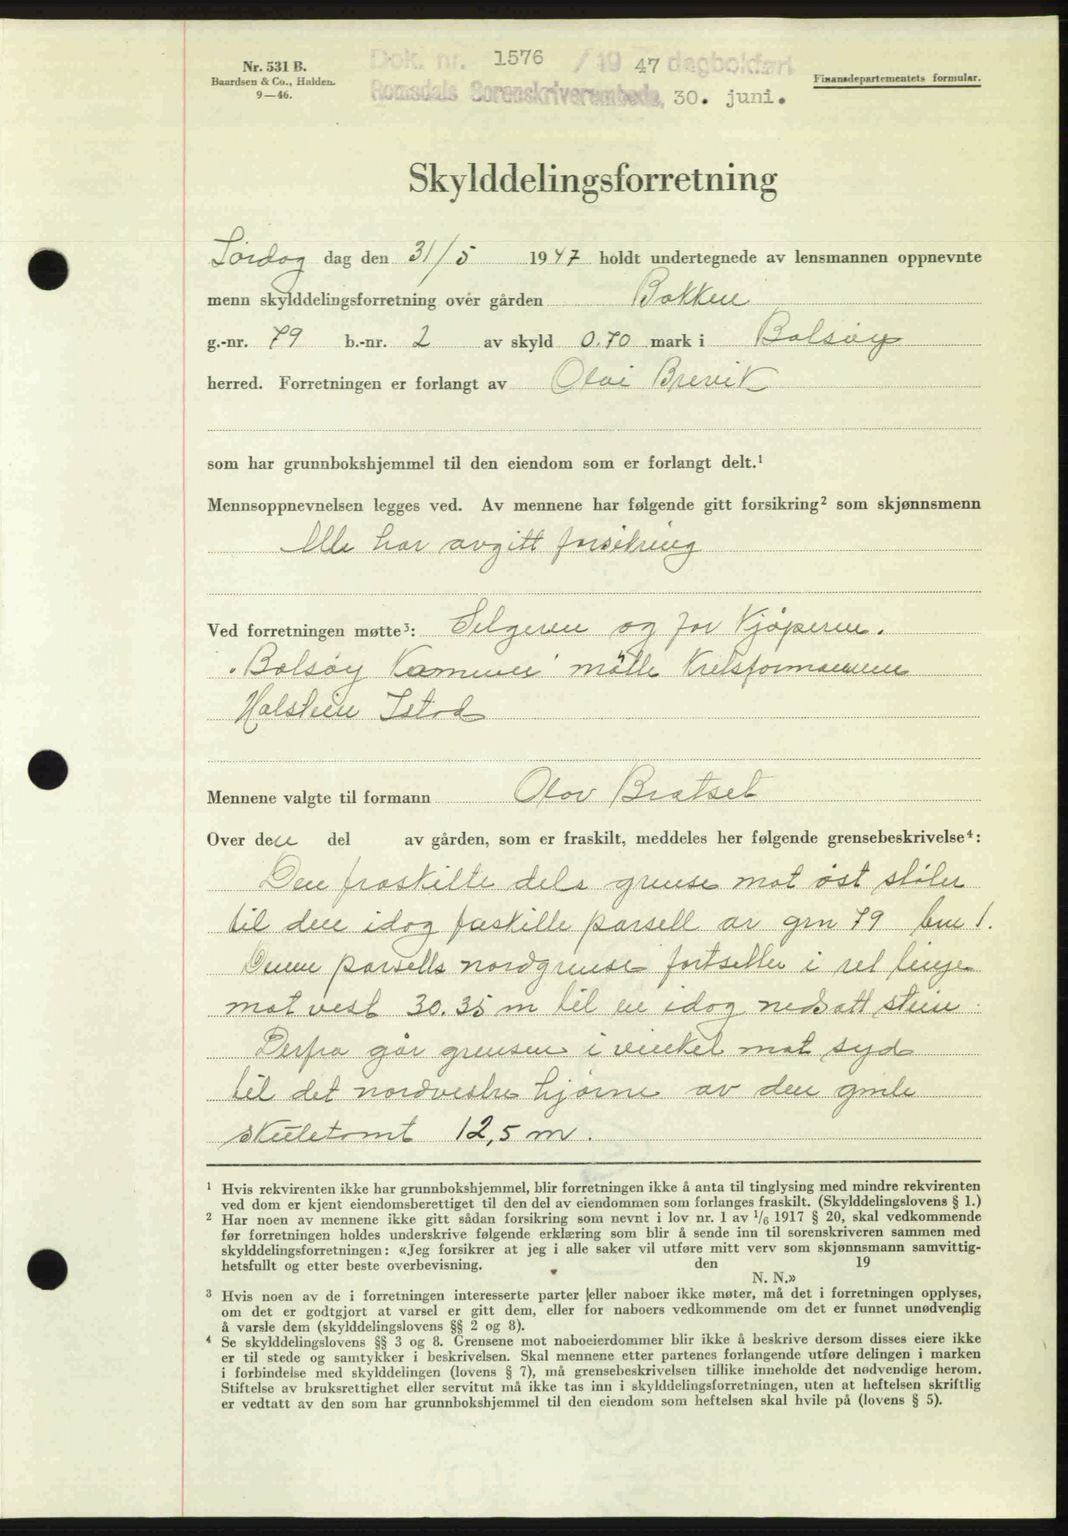 Nr. 531 B.
Baardsen & Co., Halden.
9—46.
Dok. nr. 1576 / 19 47 dagbokført
Romsdals Sorenskriverembede, 30. juni.
Finansdepartementets formular.
Skylddelingsforretning
Lørdag dag den 31/5 1947 holdt undertegnede av lensmannen oppnevnte
menn skylddelingsforretning over gården Bakken
g.-nr. 79 b.-nr. 2 av skyld 0.70 mark i Bolsøy
herred. Forretningen er forlangt av Olai Brevik
som har grunnbokshjemmel til den eiendom som er forlangt delt.¹
Mennsoppnevnelsen legges ved. Av mennene har følgende gitt forsikring² som skjønnsmenn
Alle har avgitt forsikring
Ved forretningen møtte³: Selgeren og for Kjøperen.
Bolsøy Kommune møtte Kretsformannen
Halstein Istad
Mennene valgte til formann Olav Bratset
Over den del av gården, som er fraskilt, meddeles her følgende grensebeskrivelse⁴:
Den fraskilte dels grense mot øst støter
til den idag fraskilte parsell av grn 79 bn 1.
Denne parsells nordgrense fortsetter i ret linje
mot vest 30.35 m til en idag nedsatt stein
Derfra går grensen i vinkel mot syd
til det nordvestre hjørne av den gmle
skuletomt 12,5 m.
¹ Hvis rekvirenten ikke har grunnbokshjemmel, blir forretningen ikke å anta til tinglysing med mindre rekvirenten
ved dom er kjent eiendomsberettiget til den del av eiendommen som forlanges fraskilt. (Skylddelingslovens § 1.)
² Har noen av mennene ikke gitt sådan forsikring som nevnt i lov nr. 1 av 1/6 1917 § 20, skal vedkommende
før forretningen holdes underskrive følgende erklæring som blir å sende inn til sorenskriveren sammen med
skylddelingsforretningen: «Jeg forsikrer at jeg i alle saker vil utføre mitt verv som skjønnsmann samvittig-
hetsfullt og etter beste overbevisning. den 19
N. N.»
³ Hvis noen av de i forretningen interesserte parter eller naboer ikke møter, må det i forretningen opplyses,
om det er godtgjort at varsel er gitt dem, eller for naboers vedkommende om det er funnet unødvendig
å varsle dem (skylddelingslovens §§ 2 og 8).
⁴ Se skylddelingslovens §§ 3 og 8. Grensene mot naboeierdommer blir ikke å beskrive dersom disses eiere ikke
er til stede og samtykker i beskrivelsen. Skal mennene etter partenes forlangende utføre delingen i marken
i forbindelse med skylddelingen (lovens § 7), må grensebeskrivelsen tillike inneholde det nødvendige herom.
Stiftelse av bruksrettighet eller servitut må ikke tas inn i skylddelingsforretningen, uten at heftelsen skriftlig
er vedtatt av den som har grunnbokshjemmel til den eiendom som heftelsen skal hvile på (lovens § 5).